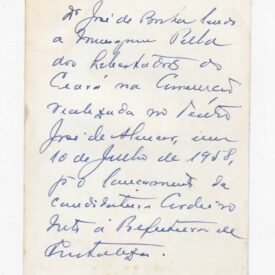 Dr José de Borba lendo
a
dos Libertadores do
Ceará na Convenção
realizada no Teatro
José de Alencar, em
10 de Julho de 1958,
p/o lançamento da
candidatura Cordeiro
Neto á Prefeitura de
Fortaleza.